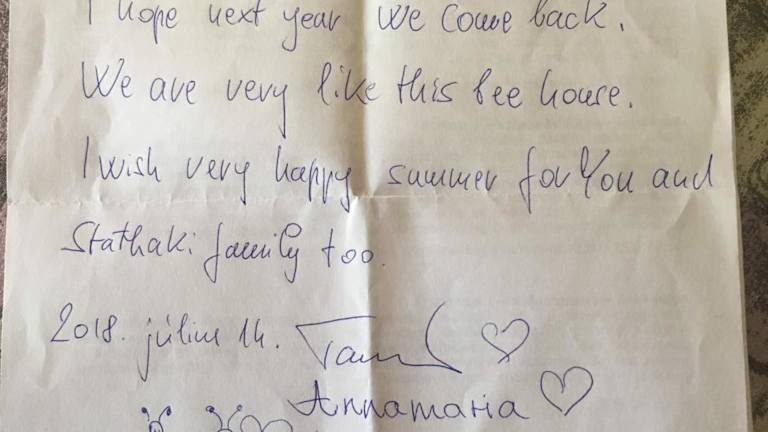 I hope next year we come back.
We are very like this bee house.
I wish very happy summer for You and
Stathaki family too.
2018. július 14.
Annamaria